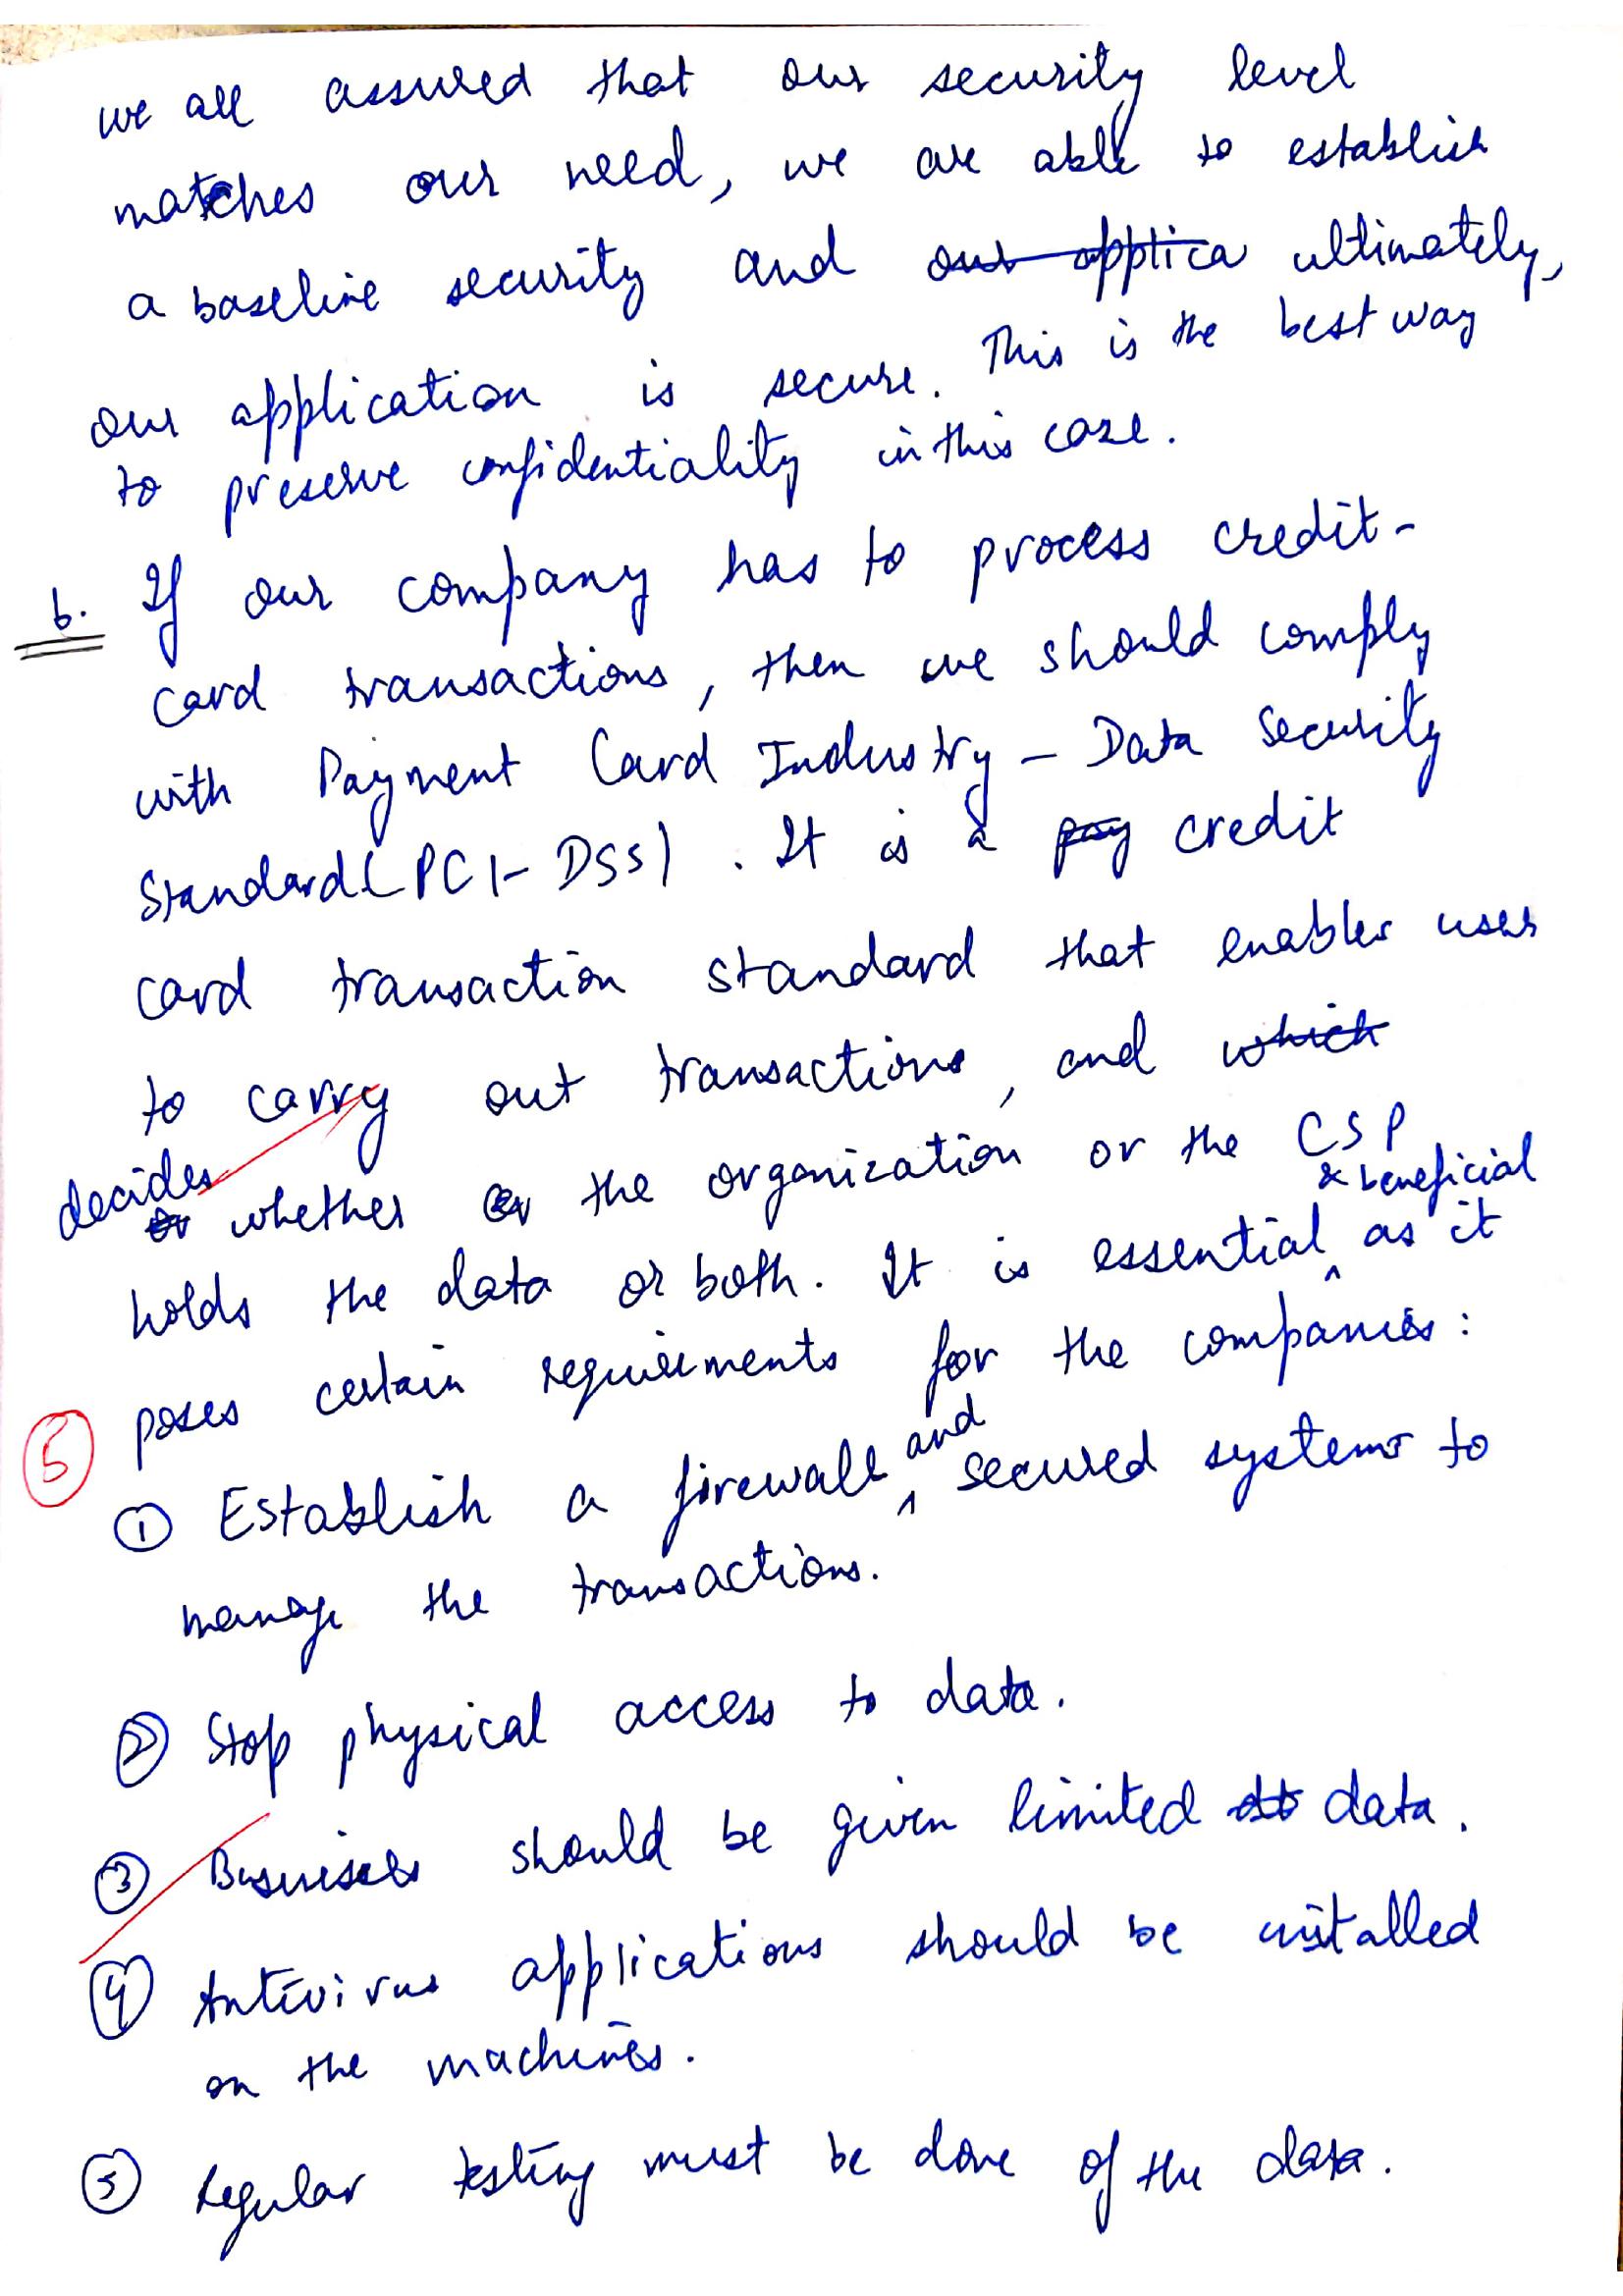 we all assured that our security level
matches our need, we are able to establish
a baseline security and our applica ultimately,
our application is secure. This is the best way
to preserve confidentiality in this case.
b. If our company has to process credit-
card transactions, then we should comply
with Payment Card Industry - Data Security
Standard (PCI- DSS). It is a pay credit
card transaction standard that enables user
to carry out transactions, and which
decides or whether or the organization or the CSP
& beneficial
holds the data or both. It is essential ^ as it
poses certain requirements for the companies:
5
and
① Establish a firewall ^ secured systems to
manage the transactions.
② Stop physical access to data.
③ Businesses should be given limited dat data.
④ Antivirus applications should be installed
on the machines.
⑤ Regular testing must be done of the data.